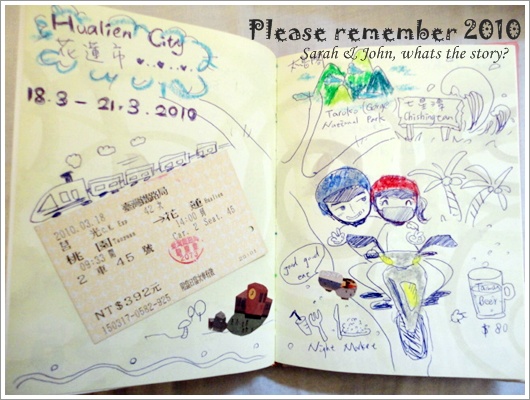 Please remember 2010
Sarah & John, whats the story?
Hualien City
花蓮市
18.3 - 21.3.2010
臺灣鐵路局
2010.03.18
42次
桃園 Taoyuan
→花蓮 Hualien
09:33開
14:00到
Car. 2 Seat. 45
2車45號
NT$392元
150317-0582-825
Taroko Gorge
National Park
七星潭
Chishingtan
good good
eat
Night Market
Taiwan
Beer
$80